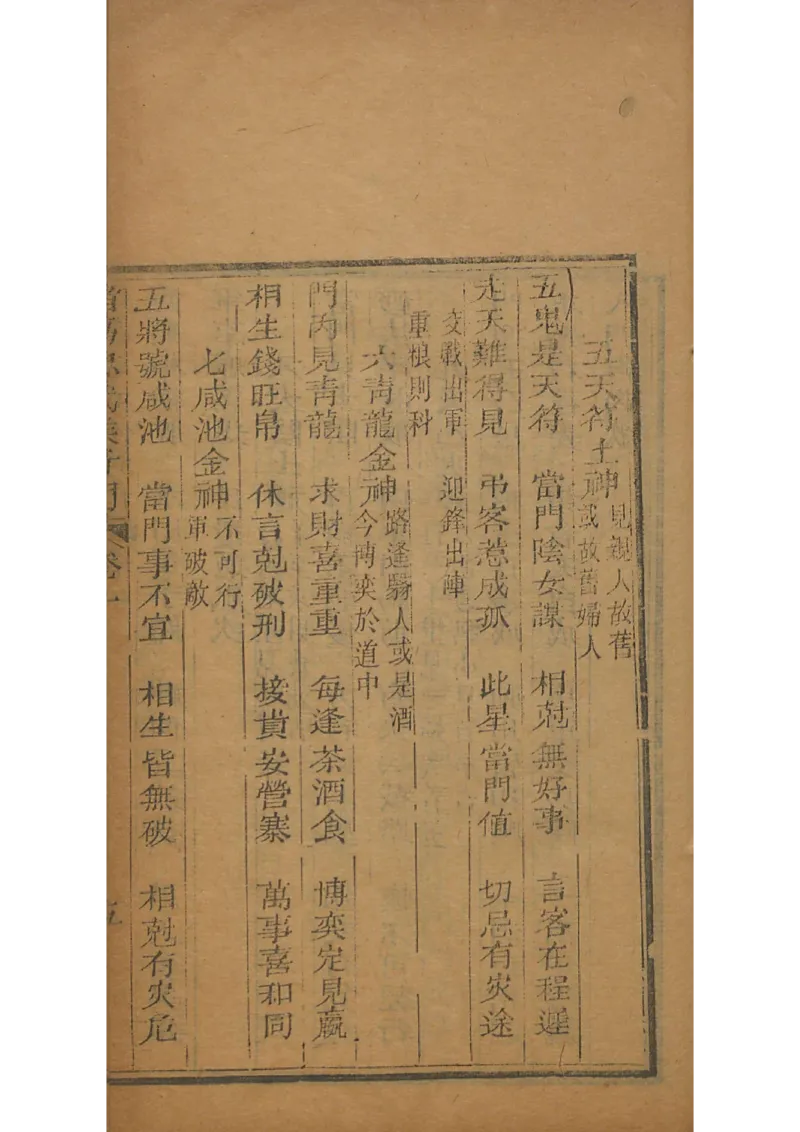 五天符土神見親人故舊
或故舊婦人
五鬼是天符 當門陰女謀 相尅無好事 言客在程遲
走天難得見 弔客惹成孤 此星當門值 切忌有災途
交戰出軍 迎鋒出陣
重根則科
六青龍金神路逢騎人或是酒
今博奕於道中
門內見青龍 求財喜重重 每逢茶酒食 博奕定見贏
相生錢旺帛 休言尅破刑 接貴安營寨 萬事喜和同
七咸池金神不可行
軍破敵
五將號咸池 當門事不宜 相生皆無破 相尅有災危
卷一
五